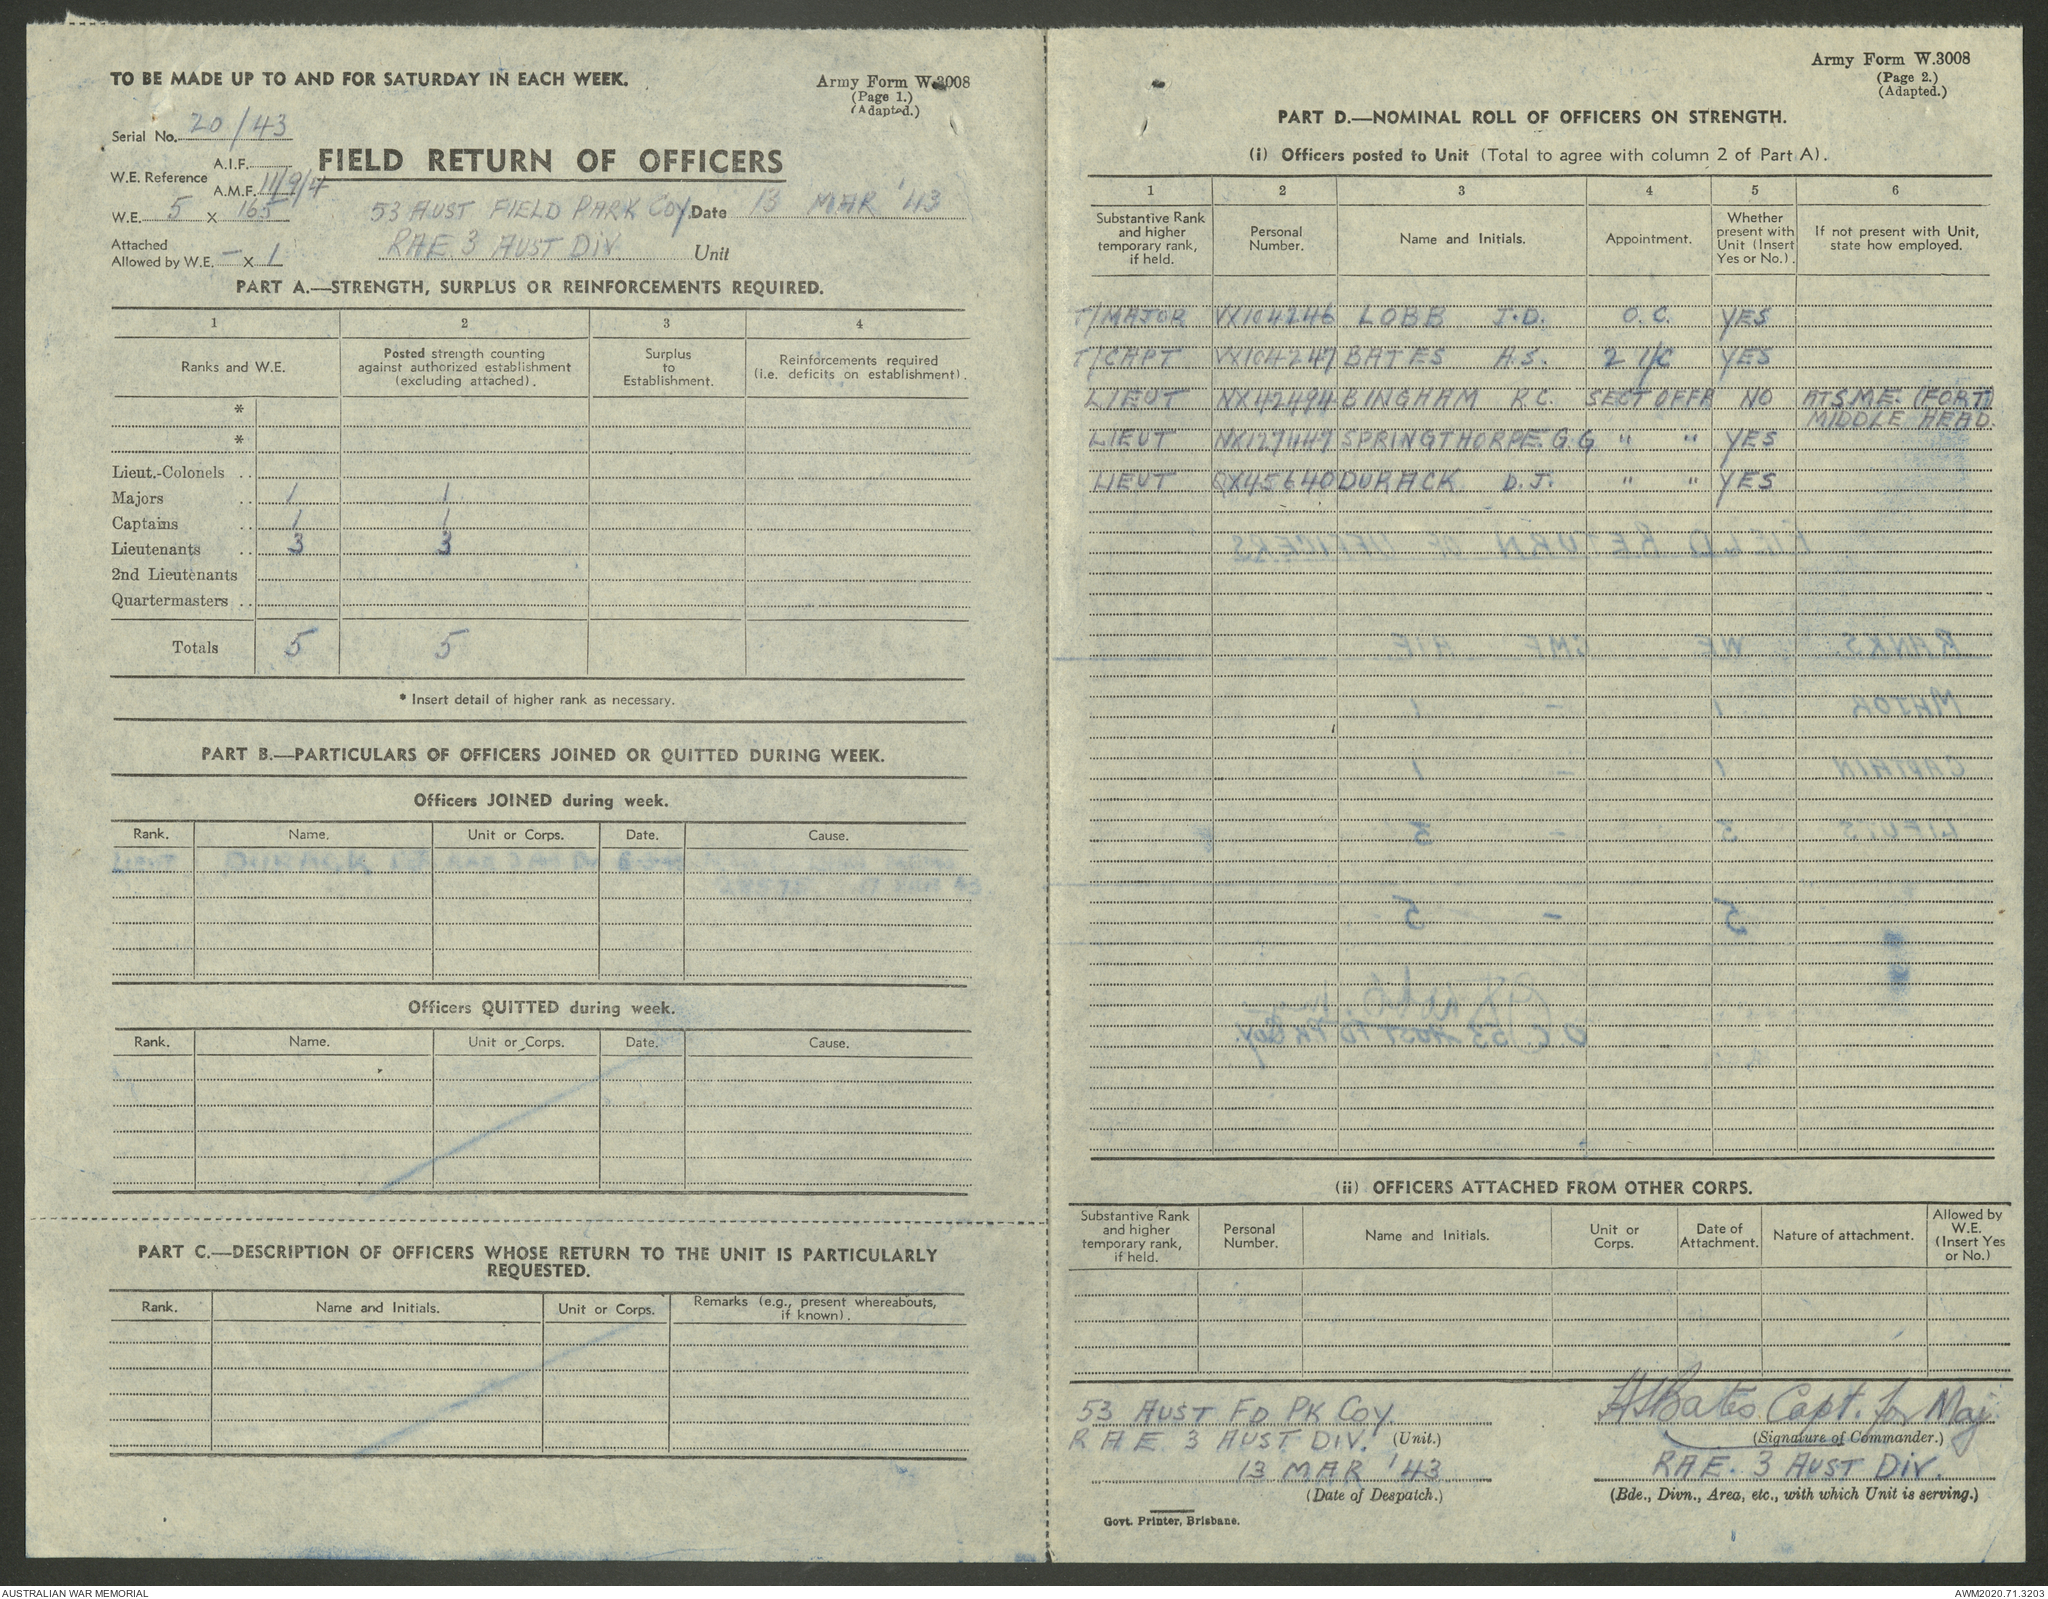 TO BE MADE UP TO AND FOR SATURDAY IN EACH WEEK.
Army Form W.3008
(Page 1.)
(Adapted.)
Serial No. 20/43
W.E. Reference A.I.F.
A.M.F. 11/9/4
FIELD RETURN OF OFFICERS
W.E. 5 X 165
53 AUST FIELD PARK COY. Date 13 MAR '43
Attached
Allowed by W.E. - X 1
RAE. 3 AUST DIV. Unit
PART A.—STRENGTH, SURPLUS OR REINFORCEMENTS REQUIRED.
1 2 3 4
Ranks and W.E. Posted strength counting against authorized establishment (excluding attached). Surplus to Establishment. Reinforcements required (i.e. deficits on establishment).
*
*
Lieut.-Colonels ..
Majors .. 1 1
Captains .. 1 1
Lieutenants .. 3 3
2nd Lieutenants
Quartermasters ..
Totals 5 5
* Insert detail of higher rank as necessary.
PART B.—PARTICULARS OF OFFICERS JOINED OR QUITTED DURING WEEK.
Officers JOINED during week.
Rank. Name. Unit or Corps. Date. Cause.
LIEUT DURACK
Officers QUITTED during week.
Rank. Name. Unit or Corps. Date. Cause.
PART C.—DESCRIPTION OF OFFICERS WHOSE RETURN TO THE UNIT IS PARTICULARLY
REQUESTED.
Rank. Name and Initials. Unit or Corps. Remarks (e.g., present whereabouts, if known).
Army Form W.3008
(Page 2.)
(Adapted.)
PART D.—NOMINAL ROLL OF OFFICERS ON STRENGTH.
(i) Officers posted to Unit (Total to agree with column 2 of Part A).
1 2 3 4 5 6
Substantive Rank and higher temporary rank, if held. Personal Number. Name and Initials. Appointment. Whether present with Unit (Insert Yes or No.). If not present with Unit, state how employed.
T/MAJOR VX104246 LOBB J.D. O.C. YES
T/CAPT VX104247 BATES A.S. 2 I/C YES
LIEUT NX42494 BINGHAM R.C. SECT OFFR NO AT S.M.E. (FORT)
MIDDLE HEAD.
LIEUT NX127447 SPRINGTHORPE. G.G " " YES
LIEUT QX45640 DURACK D.J. " " YES
FIELD RETURN OF OFFICERS
RANKS WE CMF AIF
MAJOR 1 - 1
CAPTAIN 1 - 1
LIEUTS 3 - 3
5 - 5
OC 53 AUST FD PK Coy.
(ii) OFFICERS ATTACHED FROM OTHER CORPS.
Substantive Rank and higher temporary rank, if held. Personal Number. Name and Initials. Unit or Corps. Date of Attachment. Nature of attachment. Allowed by W.E. (Insert Yes or No.)
53 AUST FD PK COY.
R A E. 3 AUST DIV. (Unit.)
13 MAR '43
(Date of Despatch.)
ASBates Capt. for Maj.
(Signature of Commander.)
RAE. 3 AUST DIV.
(Bde., Divn., Area, etc., with which Unit is serving.)
Govt. Printer, Brisbane.
AUSTRALIAN WAR MEMORIAL
AWM2020.71.3203